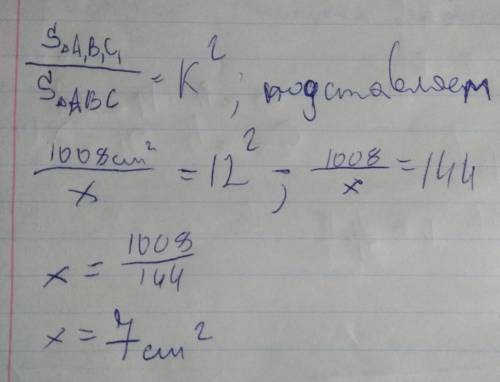 S△A₁B₁C₁ / S△ABC = K²; подставляем
1008 см² / x = 12²; 1008 / x = 144
x = 1008 / 144
x = 7 см²